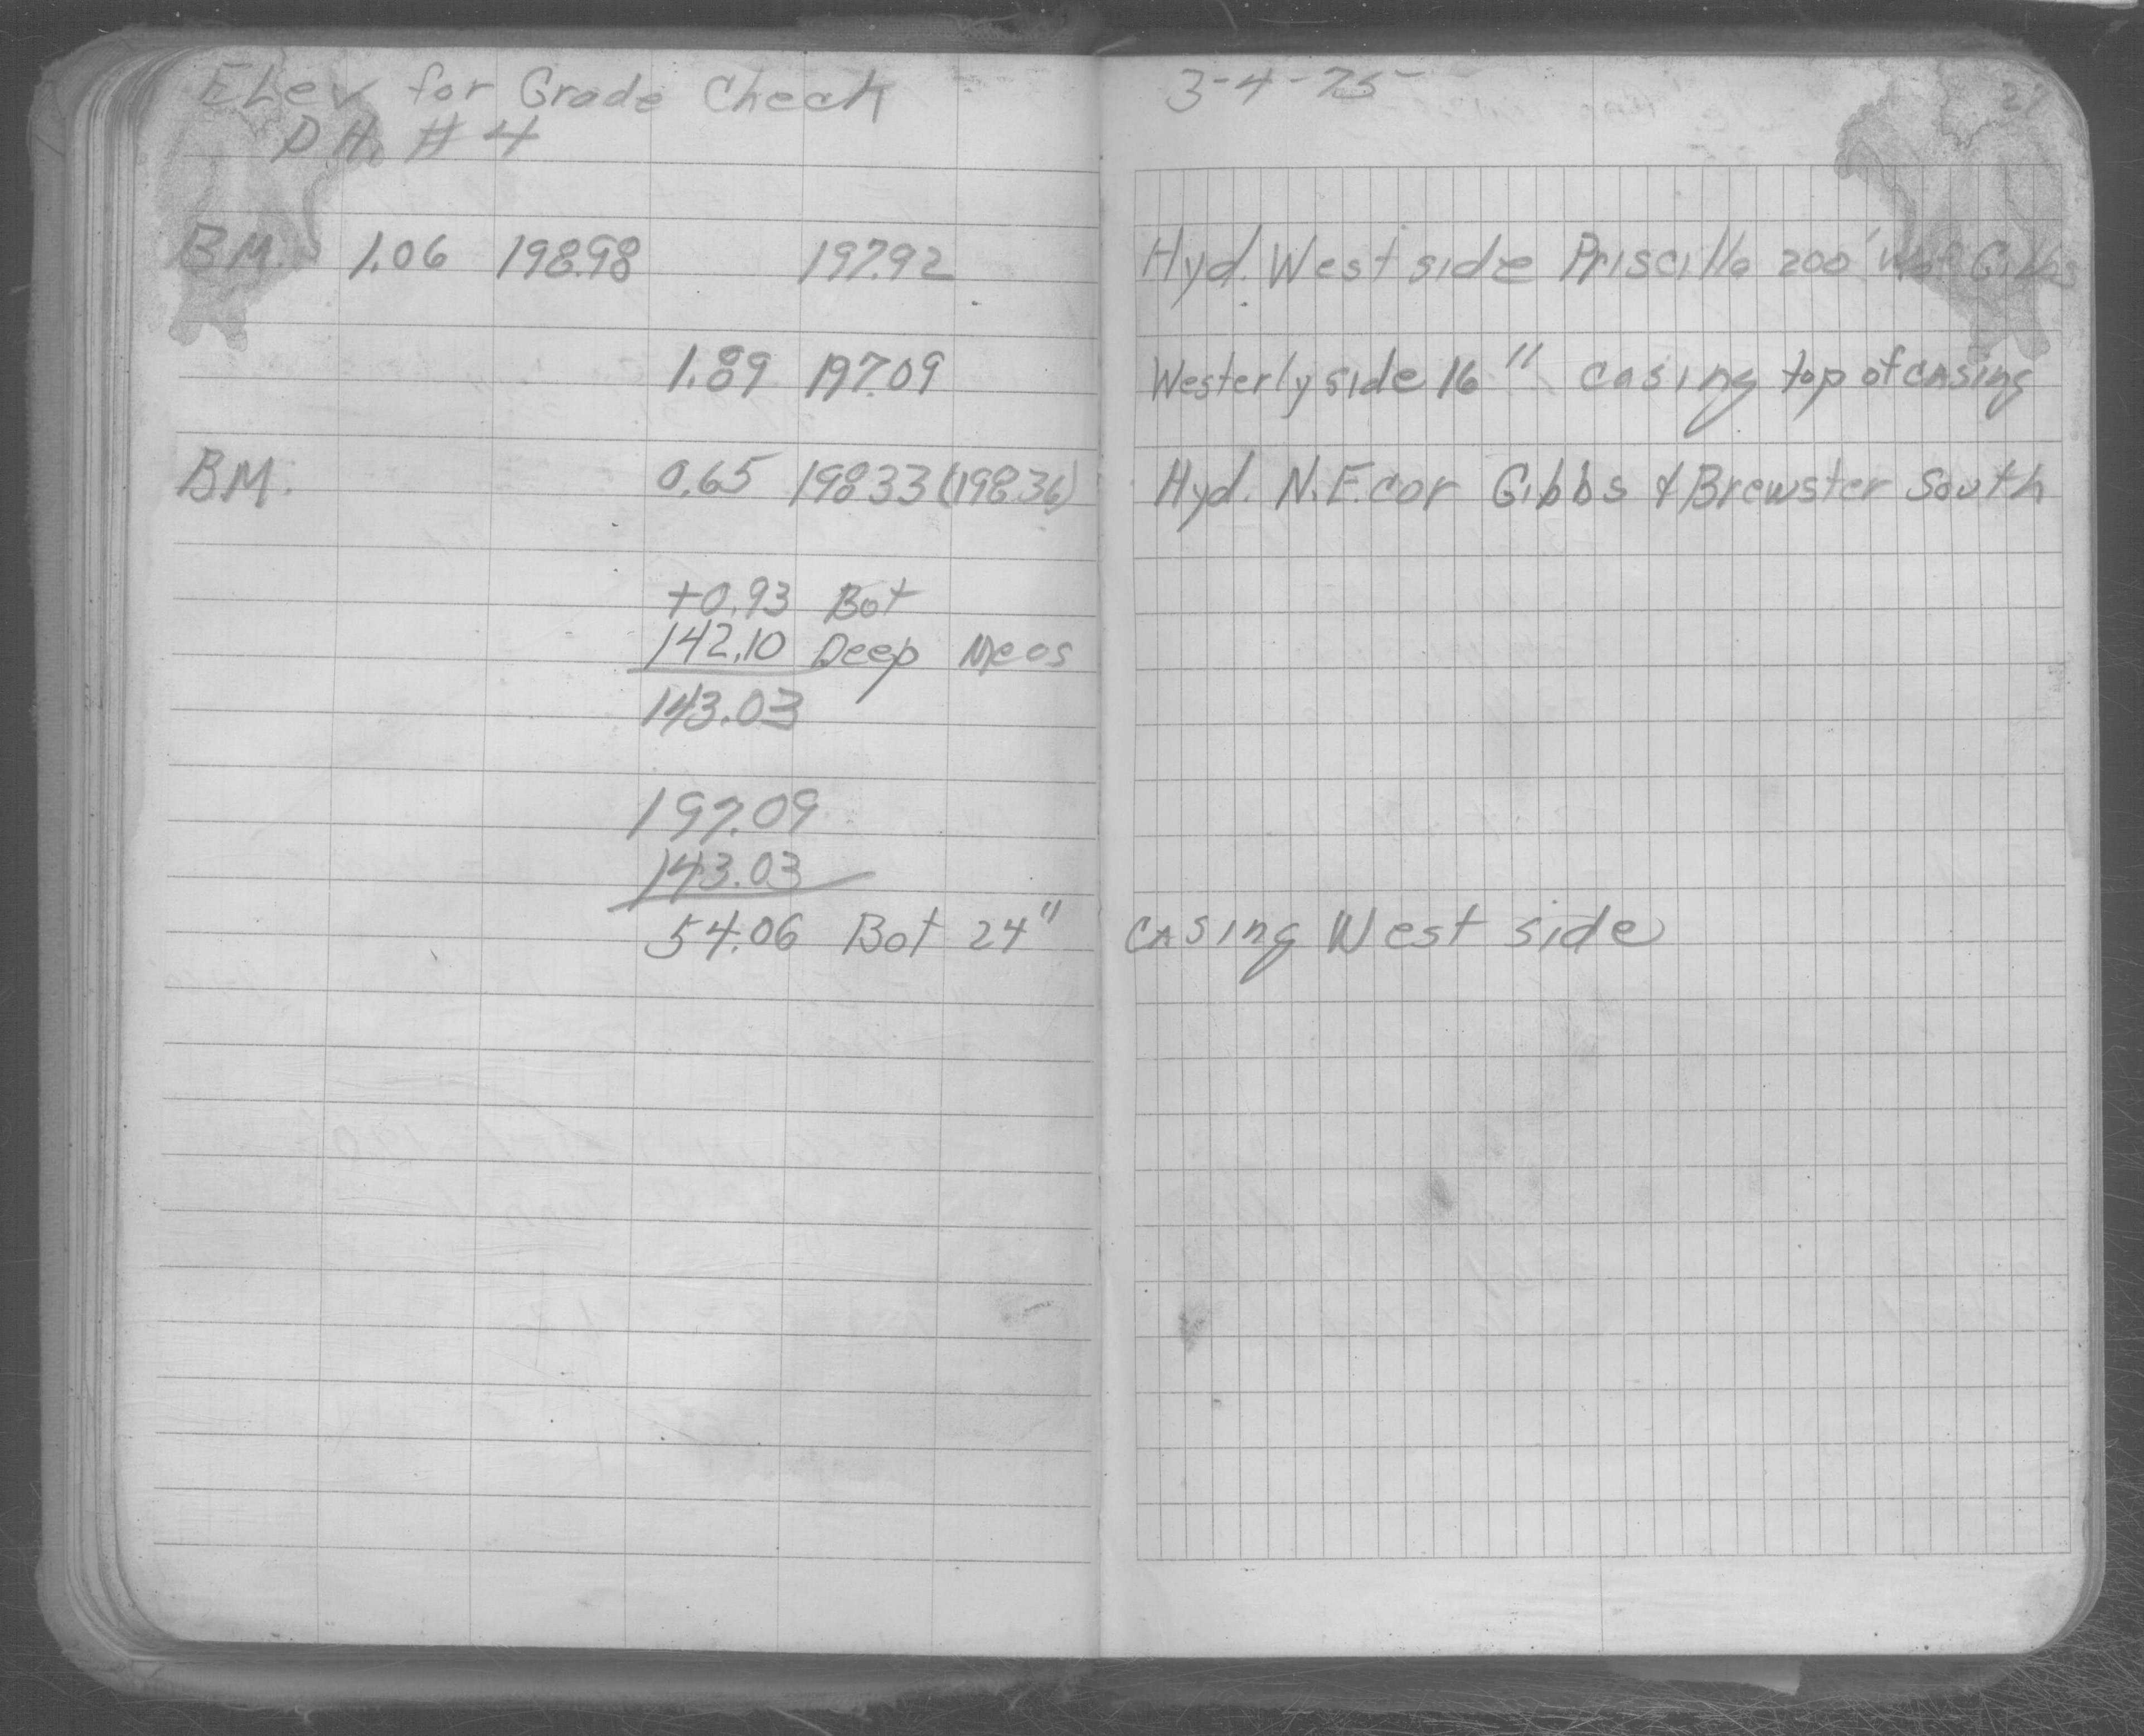 Elev for Grade Check 3-4-75
D.H. #4
BM. 1.06 198.98 197.92 Hyd. West side Priscilla 200' Gibbs
1.89 197.09 Westerly side 16" casing top of casing
BM. 0.65 198.33 (198.36) Hyd. N.E. cor Gibbs & Brewster South
+0.93 Bot
142.10 Deep Meas
143.03
197.09
143.03
54.06 Bot 24" casing West side